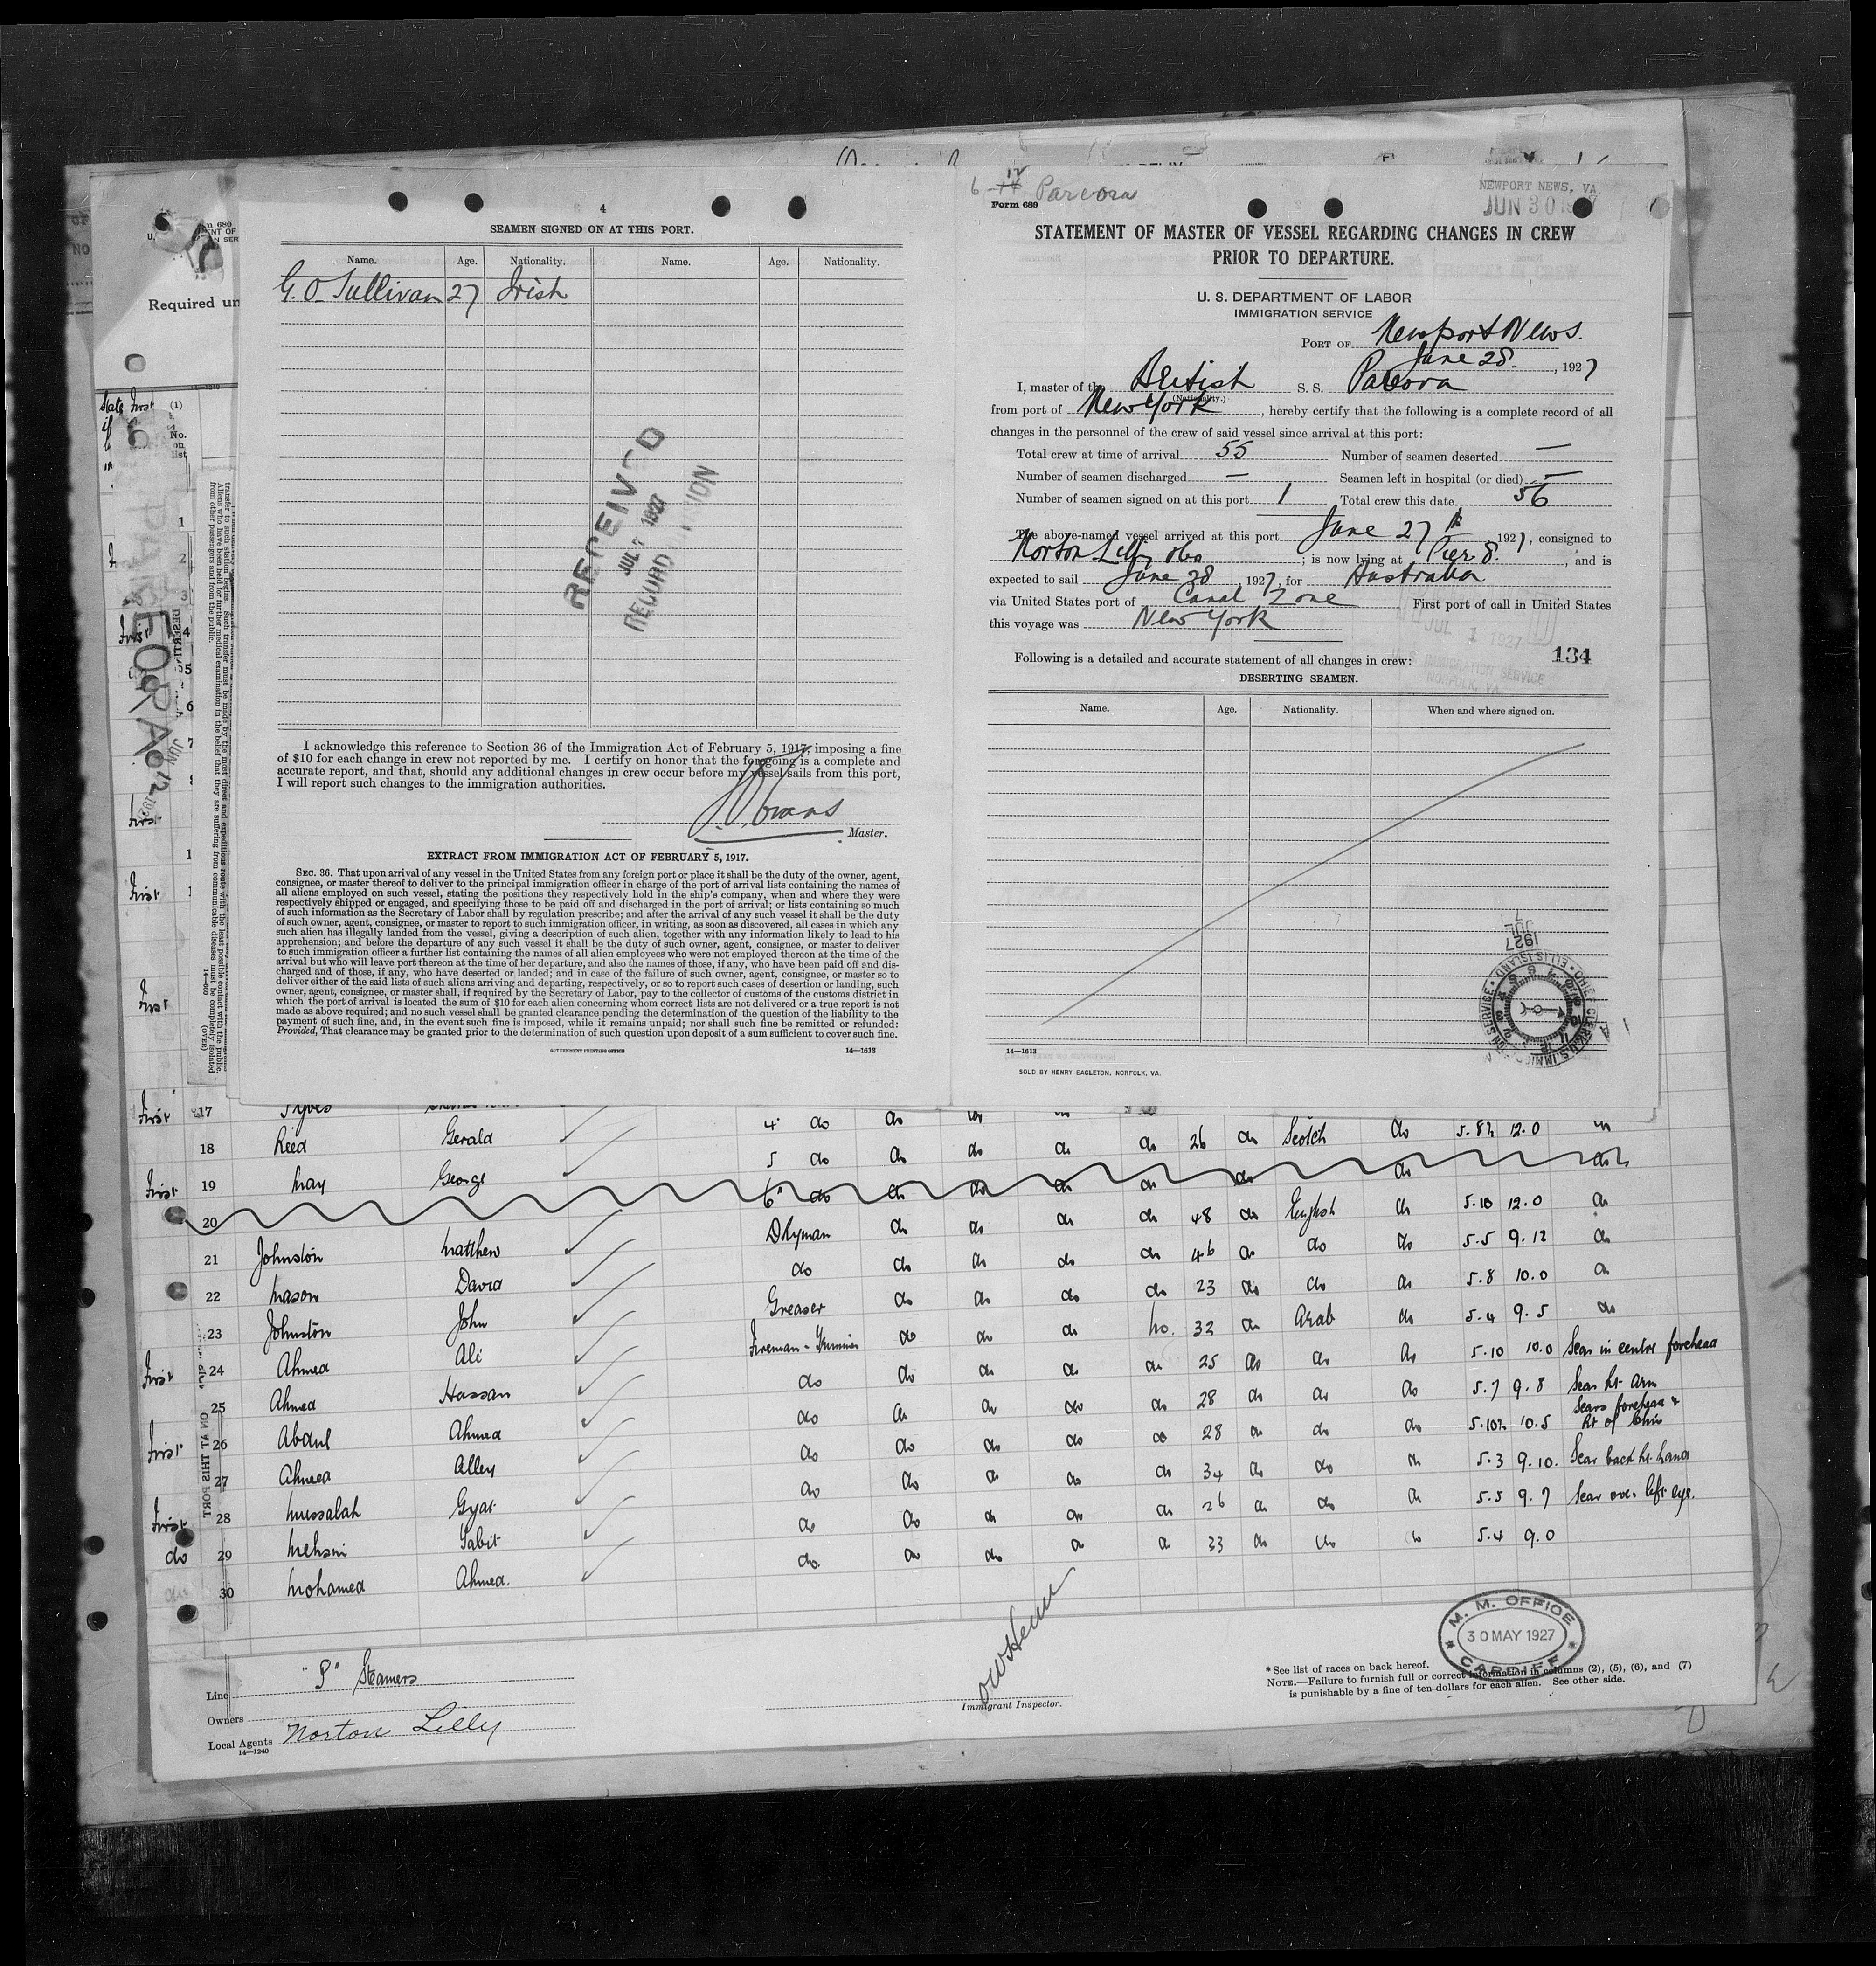 4
SEAMEN SIGNED ON AT THIS PORT.
Name. Age. Nationality. Name. Age. Nationality.
G. O. Sullivan 27 Irish
RECEIVED
JUL 7 1927
RECORD DIVISION
I acknowledge this reference to Section 36 of the Immigration Act of February 5, 1917, imposing a fine
of $10 for each change in crew not reported by me. I certify on honor that the foregoing is a complete and
accurate report, and that, should any additional changes in crew occur before my vessel sails from this port,
I will report such changes to the immigration authorities.
Evans
Master.
EXTRACT FROM IMMIGRATION ACT OF FEBRUARY 5, 1917.
SEC. 36. That upon arrival of any vessel in the United States from any foreign port or place it shall be the duty of the owner, agent,
consignee, or master thereof to deliver to the principal immigration officer in charge of the port of arrival lists containing the names of
all aliens employed on such vessel, stating the positions they respectively hold in the ship's company, when and where they were
respectively shipped or engaged, and specifying those to be paid off and discharged in the port of arrival; or lists containing so much
of such information as the Secretary of Labor shall by regulation prescribe; and after the arrival of any such vessel it shall be the duty
of such owner, agent, consignee, or master to report to such immigration officer, in writing, as soon as discovered, all cases in which any
such alien has illegally landed from the vessel, giving a description of such alien, together with any information likely to lead to his
apprehension; and before the departure of any such vessel it shall be the duty of such owner, agent, consignee, or master to deliver
to such immigration officer a further list containing the names of all alien employees who were not employed thereon at the time of the
arrival but who will leave port thereon at the time of her departure, and also the names of those, if any, who have been paid off and dis-
charged and of those, if any, who have deserted or landed; and in case of the failure of such owner, agent, consignee, or master so to
deliver either of the said lists of such aliens arriving and departing, respectively, or so to report such cases of desertion or landing, such
owner, agent, consignee, or master shall, if required by the Secretary of Labor, pay to the collector of customs of the customs district in
which the port of arrival is located the sum of $10 for each alien concerning whom correct lists are not delivered or a true report is not
made as above required; and no such vessel shall be granted clearance pending the determination of the question of the liability to the
payment of such fine, and, in the event such fine is imposed, while it remains unpaid; nor shall such fine be remitted or refunded:
Provided, That clearance may be granted prior to the determination of such question upon deposit of a sum sufficient to cover such fine.
GOVERNMENT PRINTING OFFICE 14—1613
6 Pareora
Form 689
NEWPORT NEWS, VA.
JUN 30 1927
STATEMENT OF MASTER OF VESSEL REGARDING CHANGES IN CREW
PRIOR TO DEPARTURE.
U. S. DEPARTMENT OF LABOR
IMMIGRATION SERVICE
PORT OF Newport News.
June 28. , 1927
I, master of the British S. S. Pareora
(Nationality.)
from port of New York , hereby certify that the following is a complete record of all
changes in the personnel of the crew of said vessel since arrival at this port:
Total crew at time of arrival 55 Number of seamen deserted —
Number of seamen discharged — Seamen left in hospital (or died) —
Number of seamen signed on at this port 1 Total crew this date 56
The above-named vessel arrived at this port June 27th 1927, consigned to
Norton Lilly &Co ; is now lying at Pier 8. , and is
expected to sail June 28 , 1927, for Australia
via United States port of Canal Zone First port of call in United States
this voyage was New York
JUL 1 1927
U. S. IMMIGRATION SERVICE
NORFOLK, VA.
134
Following is a detailed and accurate statement of all changes in crew:
DESERTING SEAMEN.
Name. Age. Nationality. When and where signed on.
JUL 7 1927
14—1613
SOLD BY HENRY EAGLETON, NORFOLK, VA.
Required un
PAREORA
JUN 12
(1)
No. on list
transfer to such station begins. Such transfer must be made by the most direct and expeditious route with the least possible contact with the public.
Aliens who have been held for further medical examination in the belief that they are suffering from communicable diseases must be completely isolated
from other passengers and from the public.
(OVER)
First 17
4 do do do do
18 Reed Gerald 5 do do do do do 26 do Scotch do 5.8½ 12.0
First 19 May George 6 do do do do do do do do
20
21 Johnston Matthew Dkyman do do do do 48 do English do 5.10 12.0 do
22 Mason David do do do do do 46 do do do 5.5 9.12 do
23 Johnston John Greaser do do do do 23 do do do 5.8 10.0 do
First 24 Ahmed Ali Fireman - Trimmer do do do no. 32 do Arab do 5.4 9.5 do
25 Ahmed Hassan do do do do do 25 do do do 5.10 10.0 Scar in centre forehead
First 26 Abdul Ahmed do do do do do 28 do do do 5.7 9.8 Scar Rt. Arm
27 Ahmed Alley do do do do do 28 do do do 5.10½ 10.5 Scars forehead & Rt of Chin
First 28 Mussalah Gyat do do do do do 34 do do do 5.3 9.10. Scar back Rt. hand
do 29 Mehsin Sabit do do do do do 26 do do do 5.5 9.7 Scar over left eye.
30 Mohamed Ahmed. do do do do do 33 do do do 5.4 9.0
ON AT THIS PORT
Line "P" Steamers
Owners
Local Agents Norton Lilly
14—1240
Immigrant Inspector.
M. M. OFFICE
30 MAY 1927
CARDIFF
* See list of races on back hereof.
NOTE.—Failure to furnish full or correct information in columns (2), (5), (6), and (7)
is punishable by a fine of ten dollars for each alien. See other side.